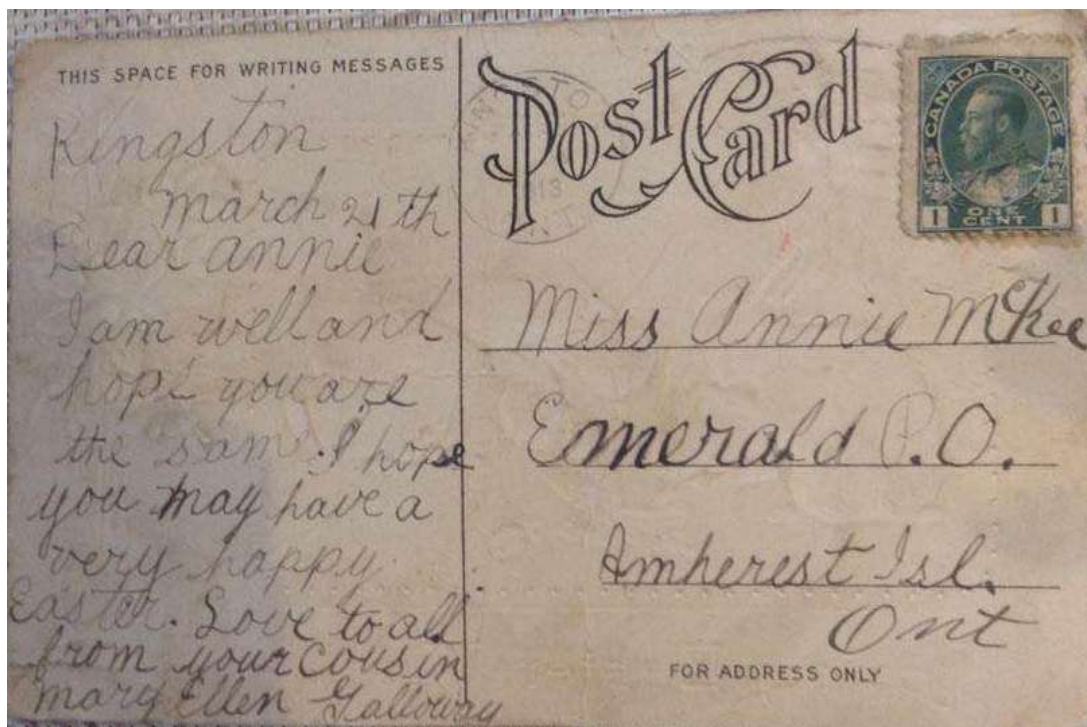 THIS SPACE FOR WRITING MESSAGES
Kingston
March 21th
Dear annie
I am well and
hope you are
the sam. I hope
you may have a
very happy
Easter. Love to all
from your cousin
mary Ellen Galloway
Post Card
13
CANADA POSTAGE
1 ONE CENT 1
Miss Annie McKee
Emerald P.O.
Amherest Isl.
Ont
FOR ADDRESS ONLY